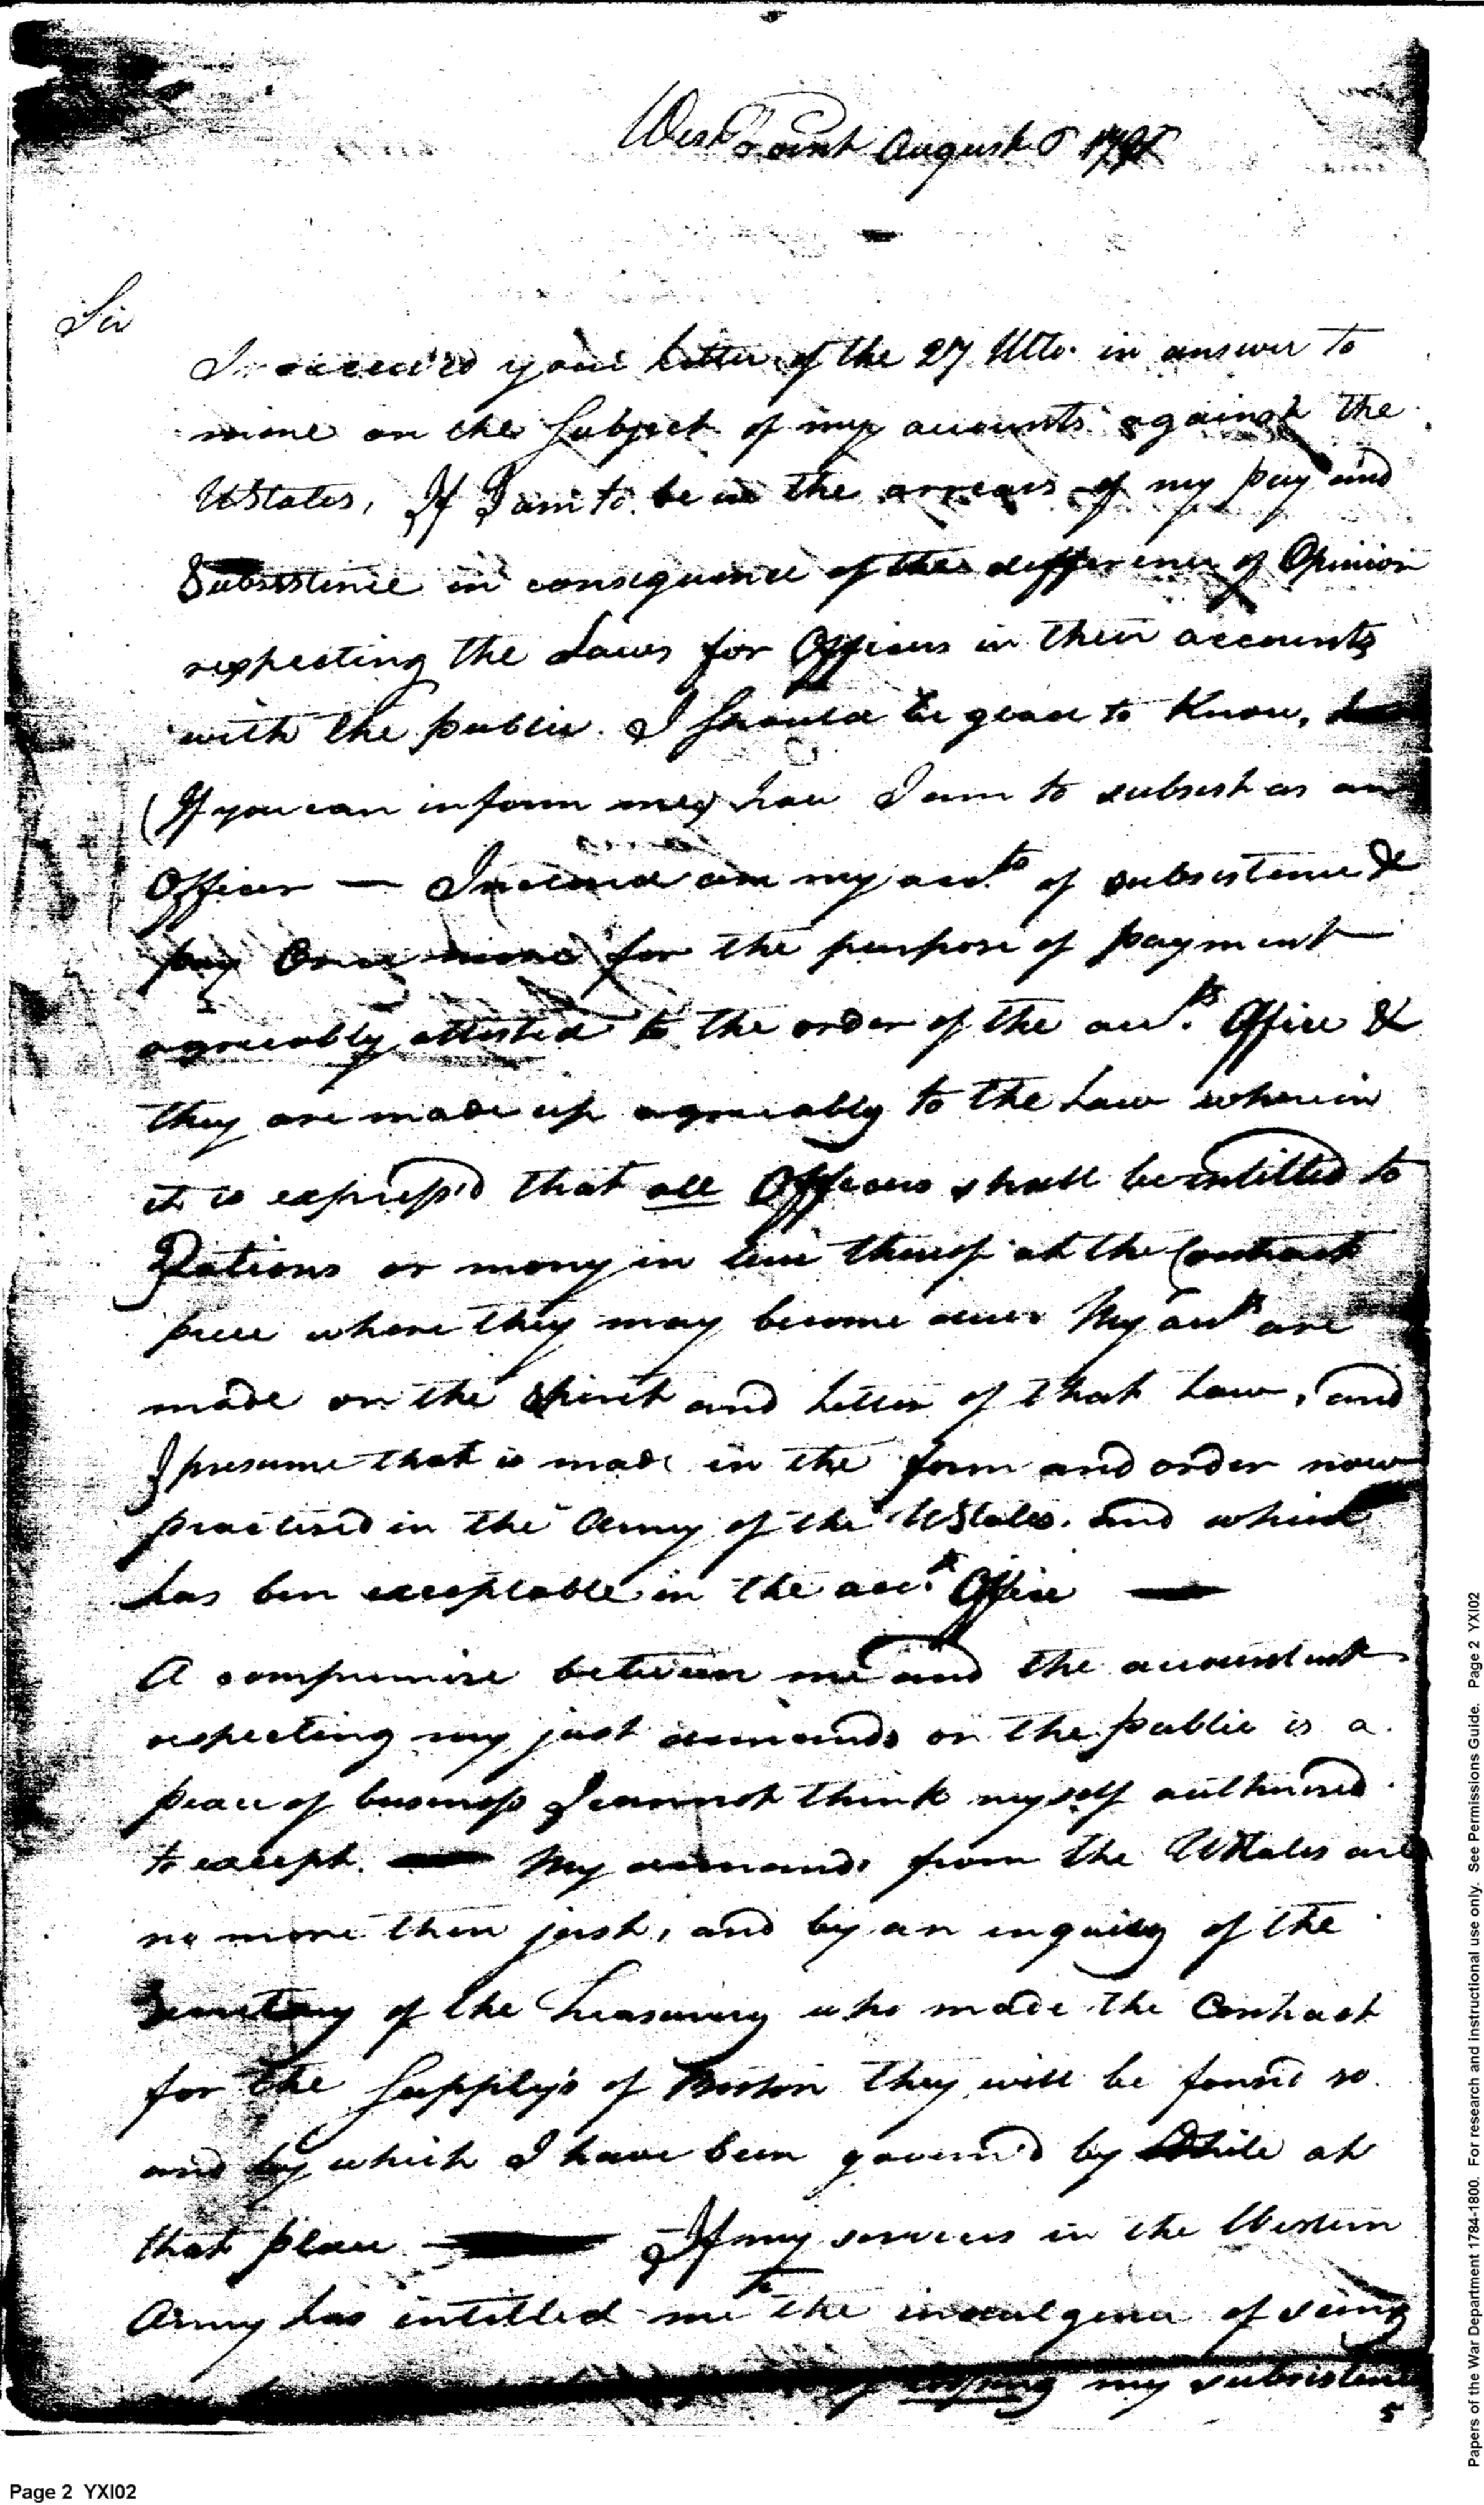 West Point August
Sir
I received your letter of the 27 Ulto. in answer to
mine on the Subject of my accounts against the
UStates, If I am to be in the arrears of my pay and
Subsistence in consequence of the difference of Opinion
respecting the Laws for Officers in their accounts
with the public. I should be glad to Know,
(If you can inform me) how I am to subsist as an
Officer — Inclosed are my acc.ts of subsistence &
pay Once more for the purpose of payment
agreeably attested to the order of the acc.ts Office &
they are made up agreeably to the Law wherein
it is express'd that all Officers shall be intitled to
Rations or mony in lieu thereof at the Contract
price where they may become due. My accts are
made on the Spirit and letter of that Law, and
I presume that is made in the form and order now
practised in the Army of the UStates. and which
has ben exceptable in the acc.ts Office —
A compromise between me and the accountant
respecting my just demands on the public is a
peace of business I cannot think myself authorised
to except. — My demands from the UStates are
no more then just, and by an enquiry of the
Secretary of the Treasurery who made the Contract
for the Supply's of Boston they will be found so
and by which I have been govern'd by While at
that place — If my services in the Western
Army has intitled me to the indulgence of seing
my subsistence
5
Page 2 YXI02
Papers of the War Department 1784-1800. For research and instructional use only. See Permissions Guide. Page 2 YXI02